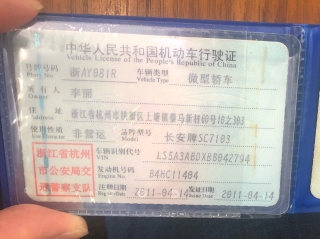 中华人民共和国机动车行驶证
Vehicle License of the People's Republic of China
号牌号码 浙AY681R 车辆类型 微型轿车
Plate No. Vehicle Type
所有人 李
Owner
住址 浙江省杭州市
Address
使用性质 非营运 品牌型号 长安牌SC7103
Model
浙江省杭州 车辆识别代号
VIN
市公安局交 发动机号码 84HC11404
Engine No.
通警察支队 注册日期 2011-04-14 发证日期 2011-04-14